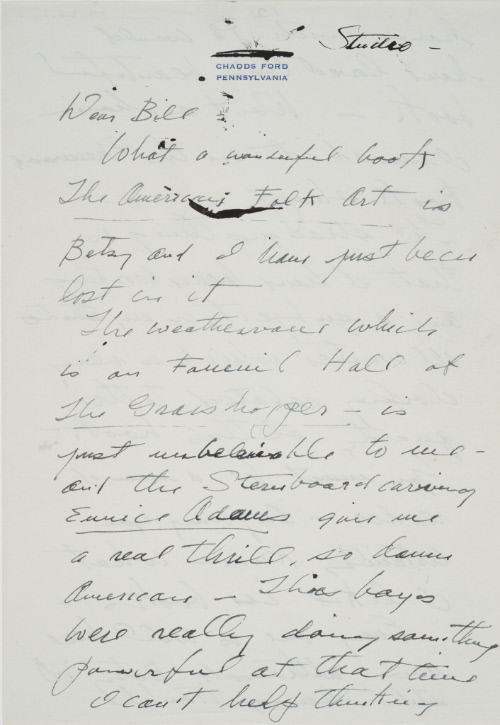 Studio -
CHADDS FORD
PENNSYLVANIA
Dear Bill
What a wonderful book
The American Folk Art is
Betsy and I have just been
lost in it
The weathervane which
is on Faneuil Hall of
The Grasshopper - is
just unbelievable to me -
and the Sternboard carving
Eunice Adams give me
a real thrill, so damn
American - Thoes boys
were really doing something
powerful at that time
I can't help thinking